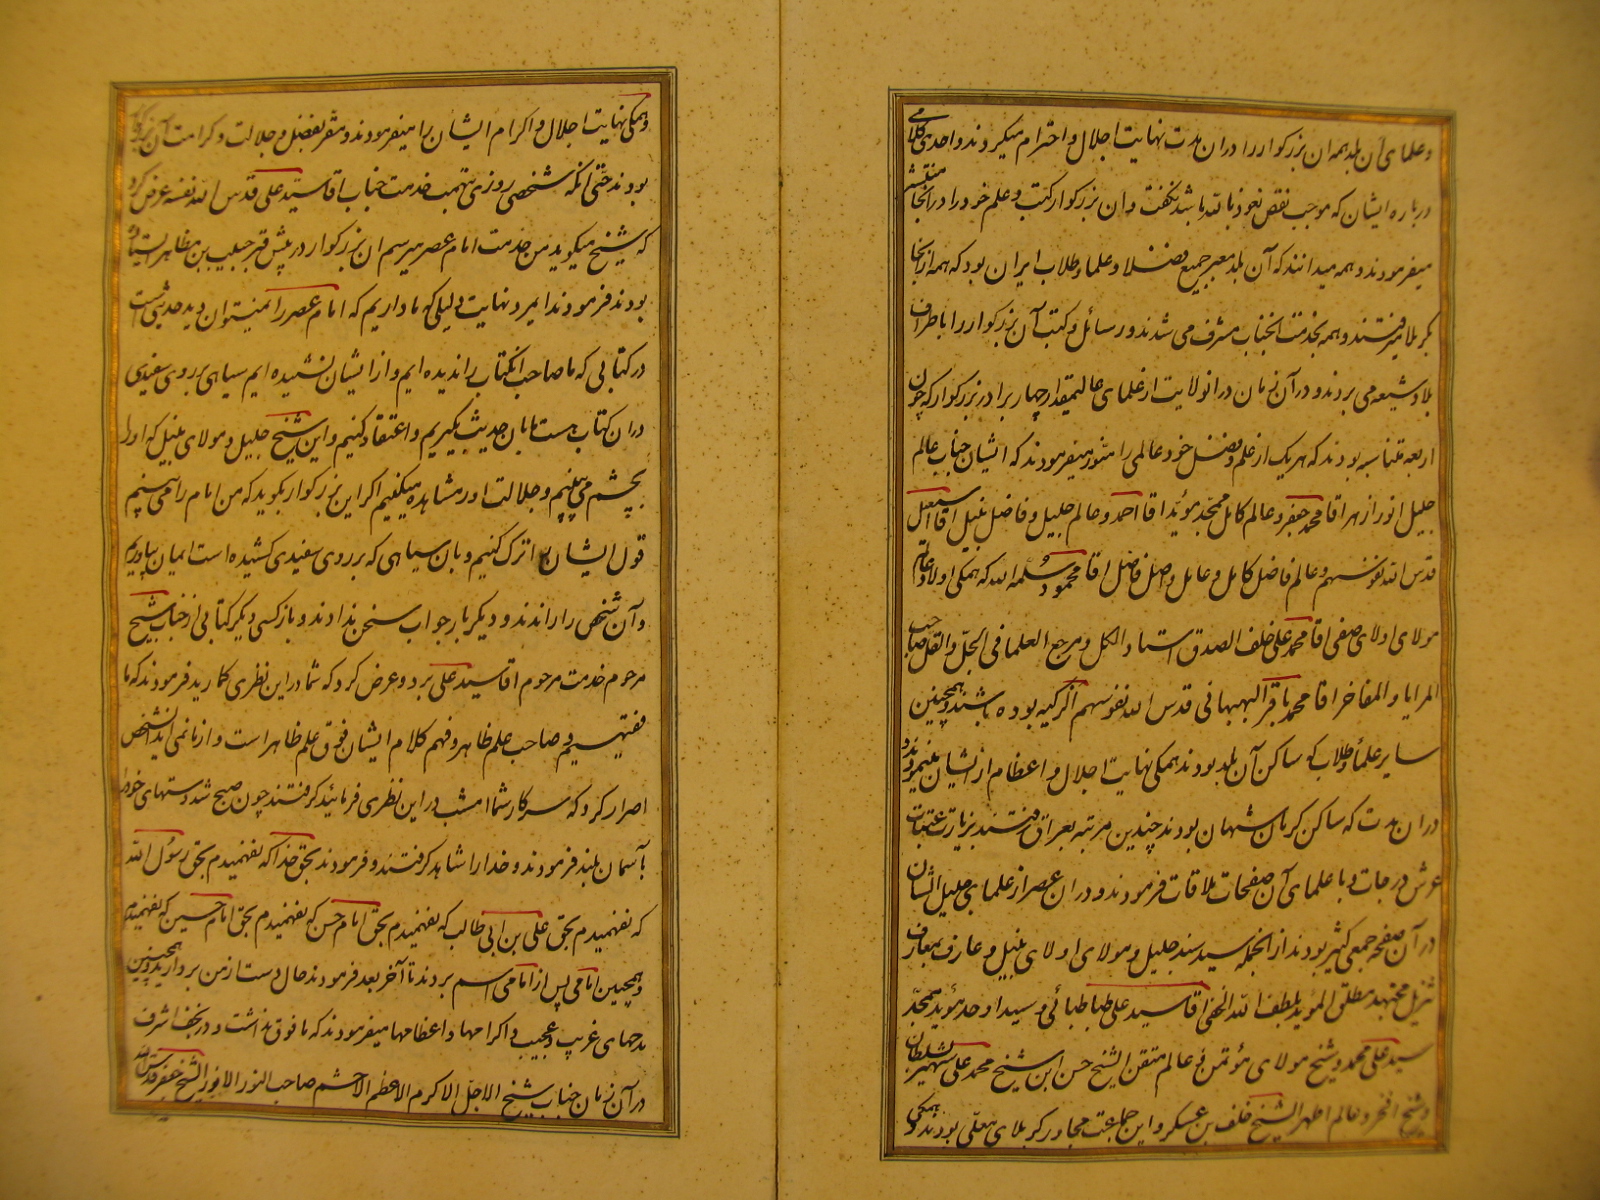 و علمای آن بلد همه ان بزرکوار را در ان مدت نهایت اجلال و احترام میکردند و احدی کلامی
درباره ایشان که موجب نقص نعوذ بالله باشد نکفت و ان بزرکوار کتب و علم خود را در انجا منتشر
میفرمودند و همه میدانند که آن بلد معبر جمیع فضلا و علما و طلاب ایران بود که همه از انجا
بکربلا میرفتند و همه بخدمت انجناب مشرف می شدند و رسائل و کتب آن بزرکوار را باطراف
بلاد شیعه می بردند و در آن زمان در انولایت از علمای عالیمقدار چهار برادر بزرکوار که چون
اربعه متناسبه بودند که هریک از علم و فضل خود عالمی را منور میفرمودند که ایشان جناب عالم
جلیل انور ازهر اقا محمد جعفر و عالم کامل ممجد مؤید اقا احمد و عالم جلیل و فاضل نبیل اقا اسمعیل
قدس الله نفوسهم و عالم فاضل کامل و عامل واصل فاضل اقا محمود سلمه الله که همکی اولاد عالم
مولای اولای صفی اقا محمد علی خلف الصدق استاد الکل و مرجع العلما فی الجل و القل صاحب
المزایا و المفاخر اقا محمد باقر البهبهانی قدس الله نفوسهم الزکیه بوده باشند و همچنین
سایر علما و طلاب که ساکن آن بلد بودند همکی نهایت اجلال و اعظام از ایشان مینمودند و
در ان مدت که ساکن کرمانشهان بودند چندین مرتبه بعراق رفتند بزیارت عتبات
عرش درجات و با علمای آن صفحات ملاقات فرمودند و در ان عصر از علمای جلیل الشان
در آن صفحه جمعی کثیر بودند از انجمله سید سند جلیل و مولای اولای نبیل و عارف بمعارف
تنزیل مجتهد مطلق المؤید بلطف الله الخفی اقا سید علی طباطبائی و سید اوحد مؤید ممجد
سید علی محمد و شیخ مولای مؤتمن و عالم متقن الشیخ حسن ابن شیخ محمد علی شهیر بسلطان
و شیخ افخر و عالم اطهر الشیخ خلف بن عسکر و این جماعت مجاور کربلای معلی بودند و همکی
و همکی نهایت اجلال و اکرام ایشان را میفرمودند و مقر بفضل و جلالت و کرامت آن بزرکوار
بودند حتی انکه شخصی روزی بتهمت خدمت جناب اقا سید علی قدس الله نفسه عرض کرد
که شیخ میکوید من خدمت امام عصر میرسم ان بزرکوار در پیش قبر حبیب بن مظاهر ایستاده
بودند فرمودند ایمرد نهایت دلیلی که ما داریم که امام عصر را نمیتوان دید حدیثی است
در کتابی که ما صاحب انکتاب را ندیده ایم و از ایشان نشنیده ایم سیاهی بر روی سفیدی
در ان کتاب هست ما بان حدیث بکیریم و اعتقاد کنیم و این شیخ جلیل و مولای نبیل که او را
بچشم می بینیم و جلالت او را مشاهده میکنیم اکر این بزرکوار بکوید که من امام را می بینم
قول ایشان را ترک کنیم و بان سیاهی که بر روی سفیدی کشیده است ایمان بیاوریم
و آن شخص را راندند و دیکر بار جواب سخن ندادند و باز کسی دیکر کتابی از جناب شیخ
مرحوم خدمت مرحوم اقا سید علی برد و عرض کرد که شما در این نظری کمارید فرمودند که ما
فقیهیم و صاحب علم ظاهر و فهم کلام ایشان فوق علم ظاهر است و از ما نمی اید انشخص
اصرار کرد که سرکار شما امشب در این نظری فرمائید کرفتند چون صبح شد دستهای خود را
بآسمان بلند فرمودند و خدا را شاهد کرفتند و فرمودند بحق خدا که نفهمیدم بحق رسول الله
که نفهمیدم بحق علی بن ابی طالب که نفهمیدم بحق امام حسن که نفهمیدم بحق امام حسین که نفهمیدم
و همچنین امامی پس از امامی اسم بردند تا آخر بعد فرمودند حال دست از من بردارید و همچنین
مدحهای غریب و عجیب و اکرامها و اعظامها میفرمودند که مافوق نداشت و در نجف اشرف
در آن زمان جناب شیخ الاجل الاکرم الاعظم الاحشم صاحب النور الانور الشیخ جعفر قدس الله